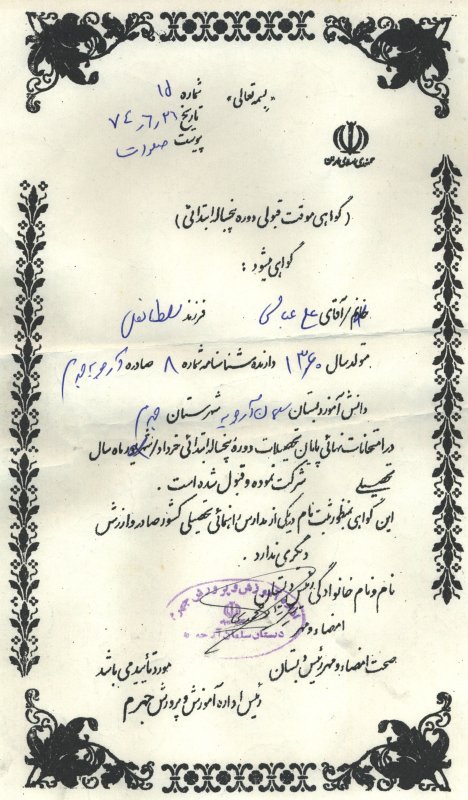 شماره ۱۵
«بسمه تعالی»
تاریخ ۷۴٫۶٫۲۶
پیوست صلوات
جمهوری اسلامی ایران
(گواهی موقت قبولی دوره پنجساله ابتدائی)
گواهی میشود :
خانم/آقای علی عباسی فرزند
متولد سال ۱۳۶۰ دارنده شناسنامه شماره ۸ صادره از جهرم
دانش آموز دبستان سلمان شهرستان جهرم
در امتحانات نهائی پایان تحصیلات دوره پنجساله ابتدائی خرداد/شهریور ماه سال
تحصیلی شرکت نموده و قبول شده است .
این گواهی بمنظور ثبت نام در یکی از مدارس راهنمائی تحصیلی کشور صادر و ارزش
دیگری ندارد .
نام و نام خانوادگی رئیس دبستان
آموزش و پرورش جهرم
امضاء و مهر
دبستان سلمان
صحت امضاء و مهر رئیس دبستان مورد تأیید می باشد
رئیس اداره آموزش و پرورش جهرم